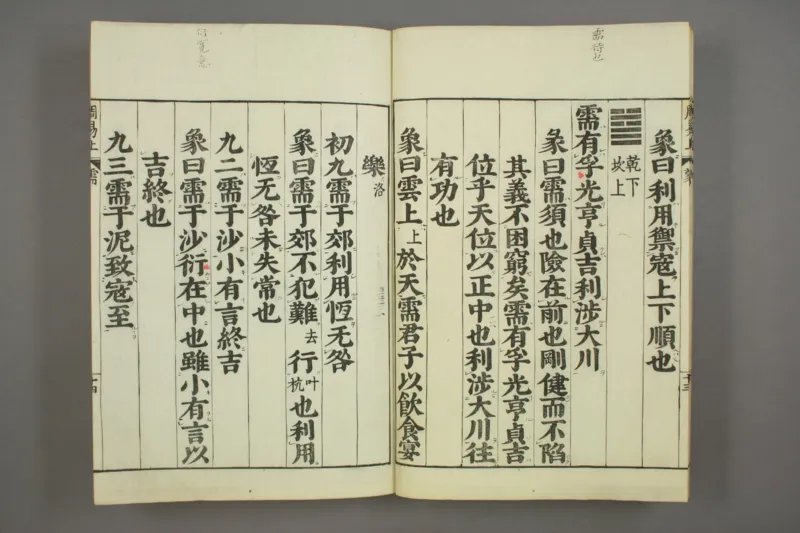 需待也
象曰利用禦寇上下順也
乾下
坎上
需有孚光亨貞吉利涉大川
彖曰需須也險在前也剛健而不陷
其義不困窮矣需有孚光亨貞吉
位乎天位以正中也利涉大川往
有功也
象曰雲上上於天需君子以飲食宴
樂洛
初九需于郊利用恆无咎
象曰需于郊不犯難去行叶杭也利用
恆无咎未失常也
九二需于沙小有言終吉
象曰需于沙衍在中也雖小有言以
吉終也
九三需于泥致寇至
周易上
需
十四
衍寬意